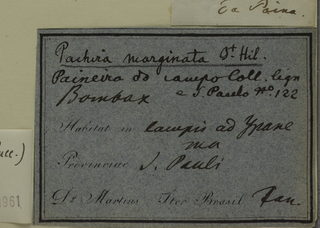 Ea Paina.
Pachira marginata St Hil.
Paineira do campo Coll. lign
Bombax e S. Paulo No. 122
Habitat in campis ad Ypane
ma
Provinciae S. Pauli
Dr Martius Iter Brasil Jan
ucc.)
1961